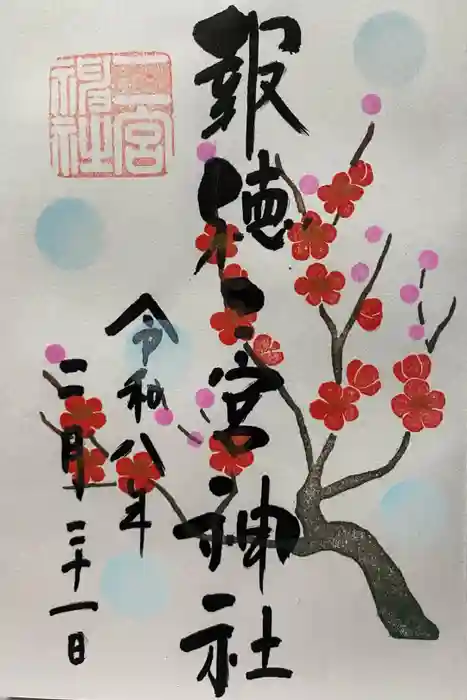 報徳二宮神社
令和八年
二月二十一日
二宮
神社